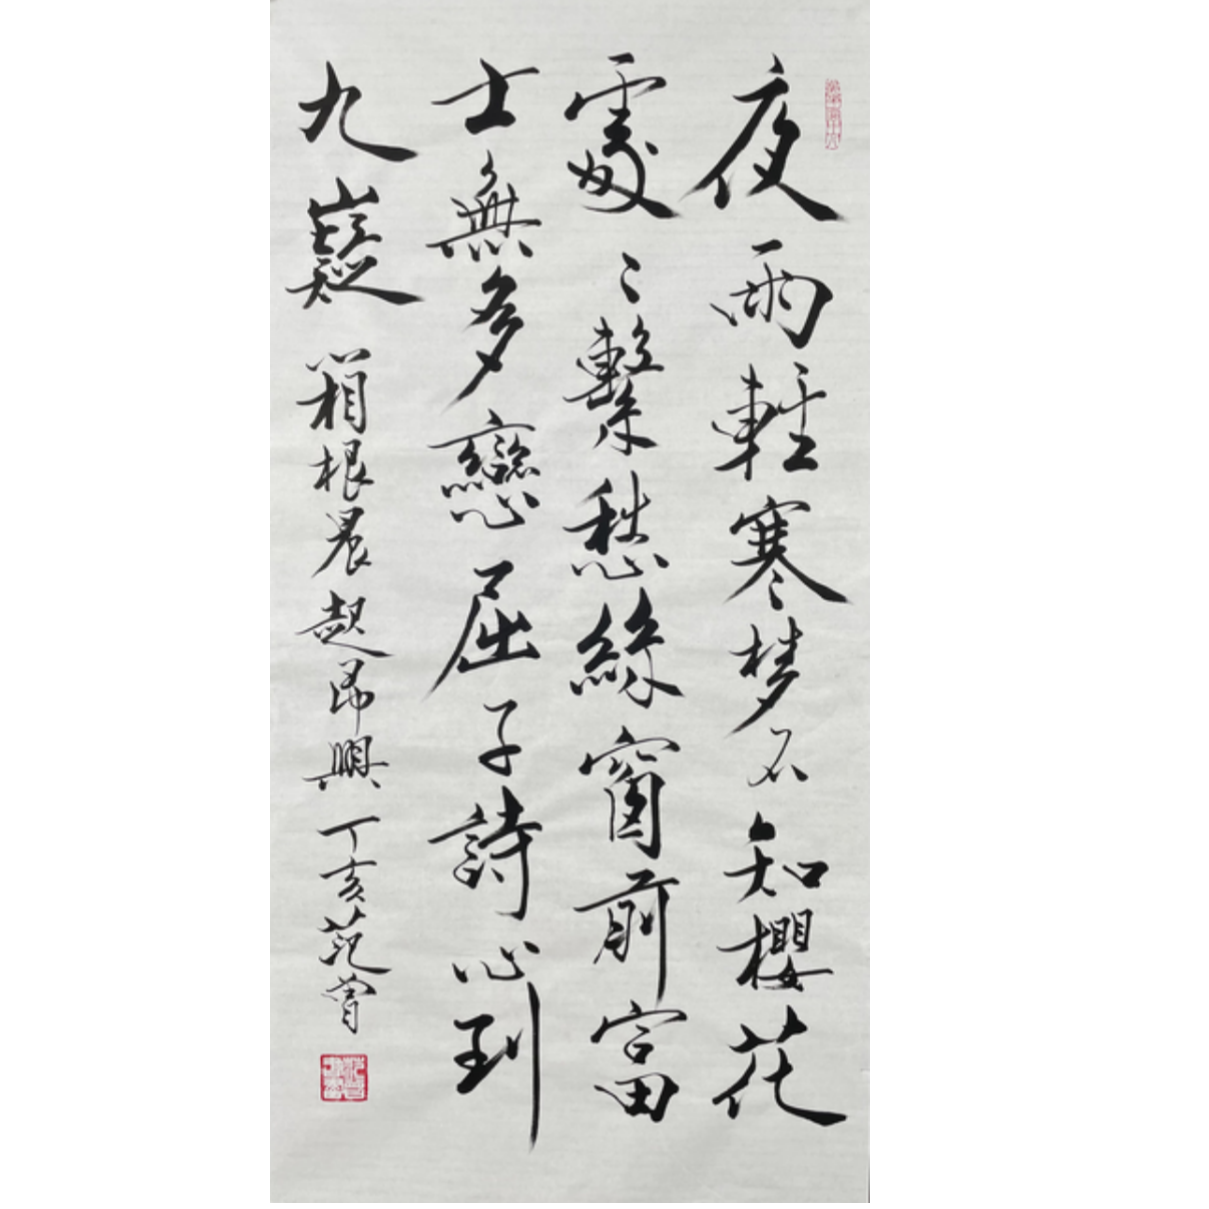 夜雨輕寒梦不知櫻花
處〻繫愁絲窗前富
士無多戀屈子詩心到
九嶷 箱根晨起即興 丁亥范曾